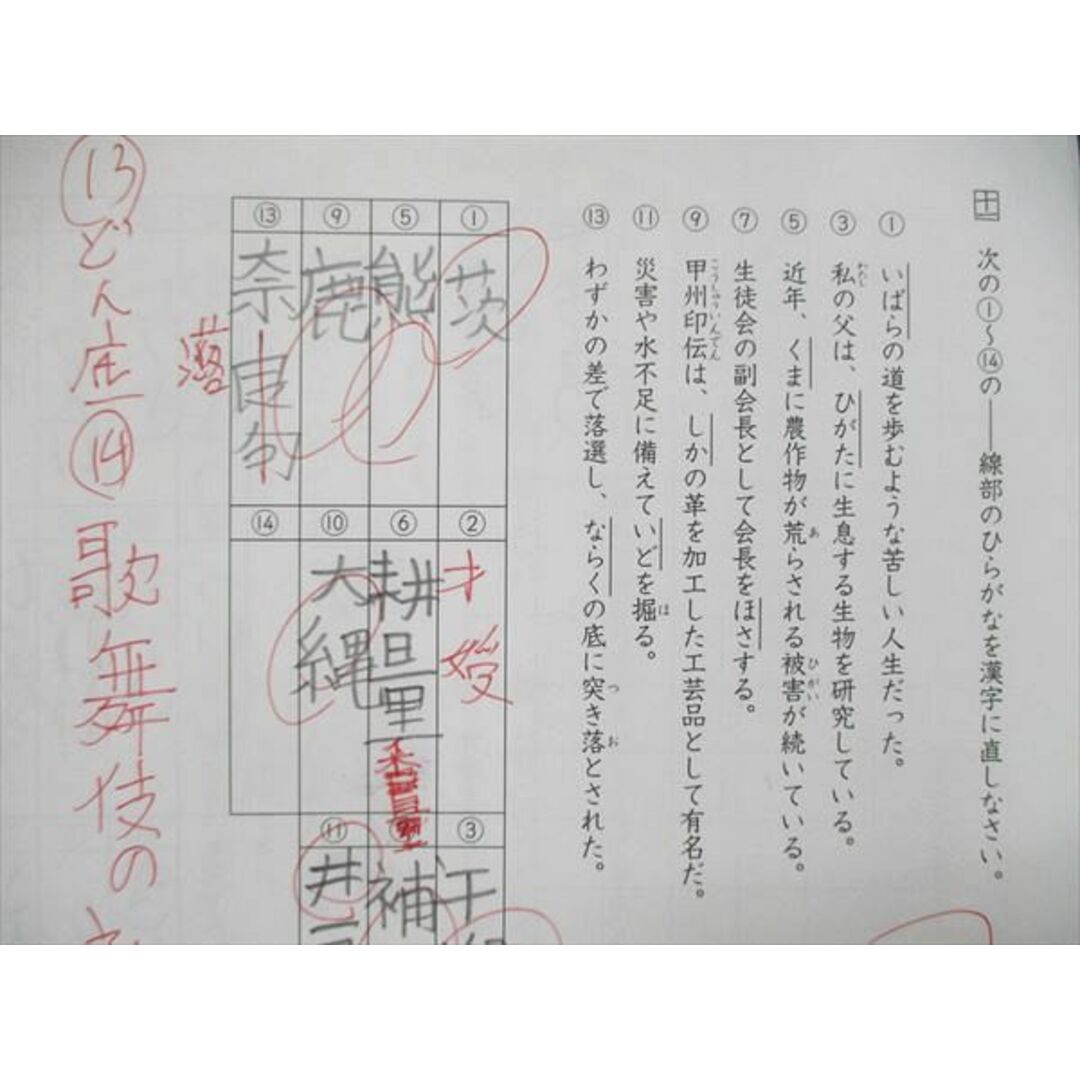 十一 次の①～⑭の――線部のひらがなを漢字に直しなさい。
① いばらの道を歩むような苦しい人生だった。
③ 私の父は、ひがたに生息する生物を研究している。
⑤ 近年、くまに農作物が荒らされる被害が続いている。
⑦ 生徒会の副会長として会長をほさする。
⑨ 甲州印伝は、しかの革を加工した工芸品として有名だ。
⑪ 災害や水不足に備えていどを掘る。
⑬ わずかの差で落選し、ならくの底に突き落とされた。
① 茨
⑤ 熊
⑨ 鹿
⑬ 奈
落
② 才
⑥ 耕
⑩ 大縄
⑭
③ 干
補
⑪ 井
⑬どん底 ⑭歌舞伎の